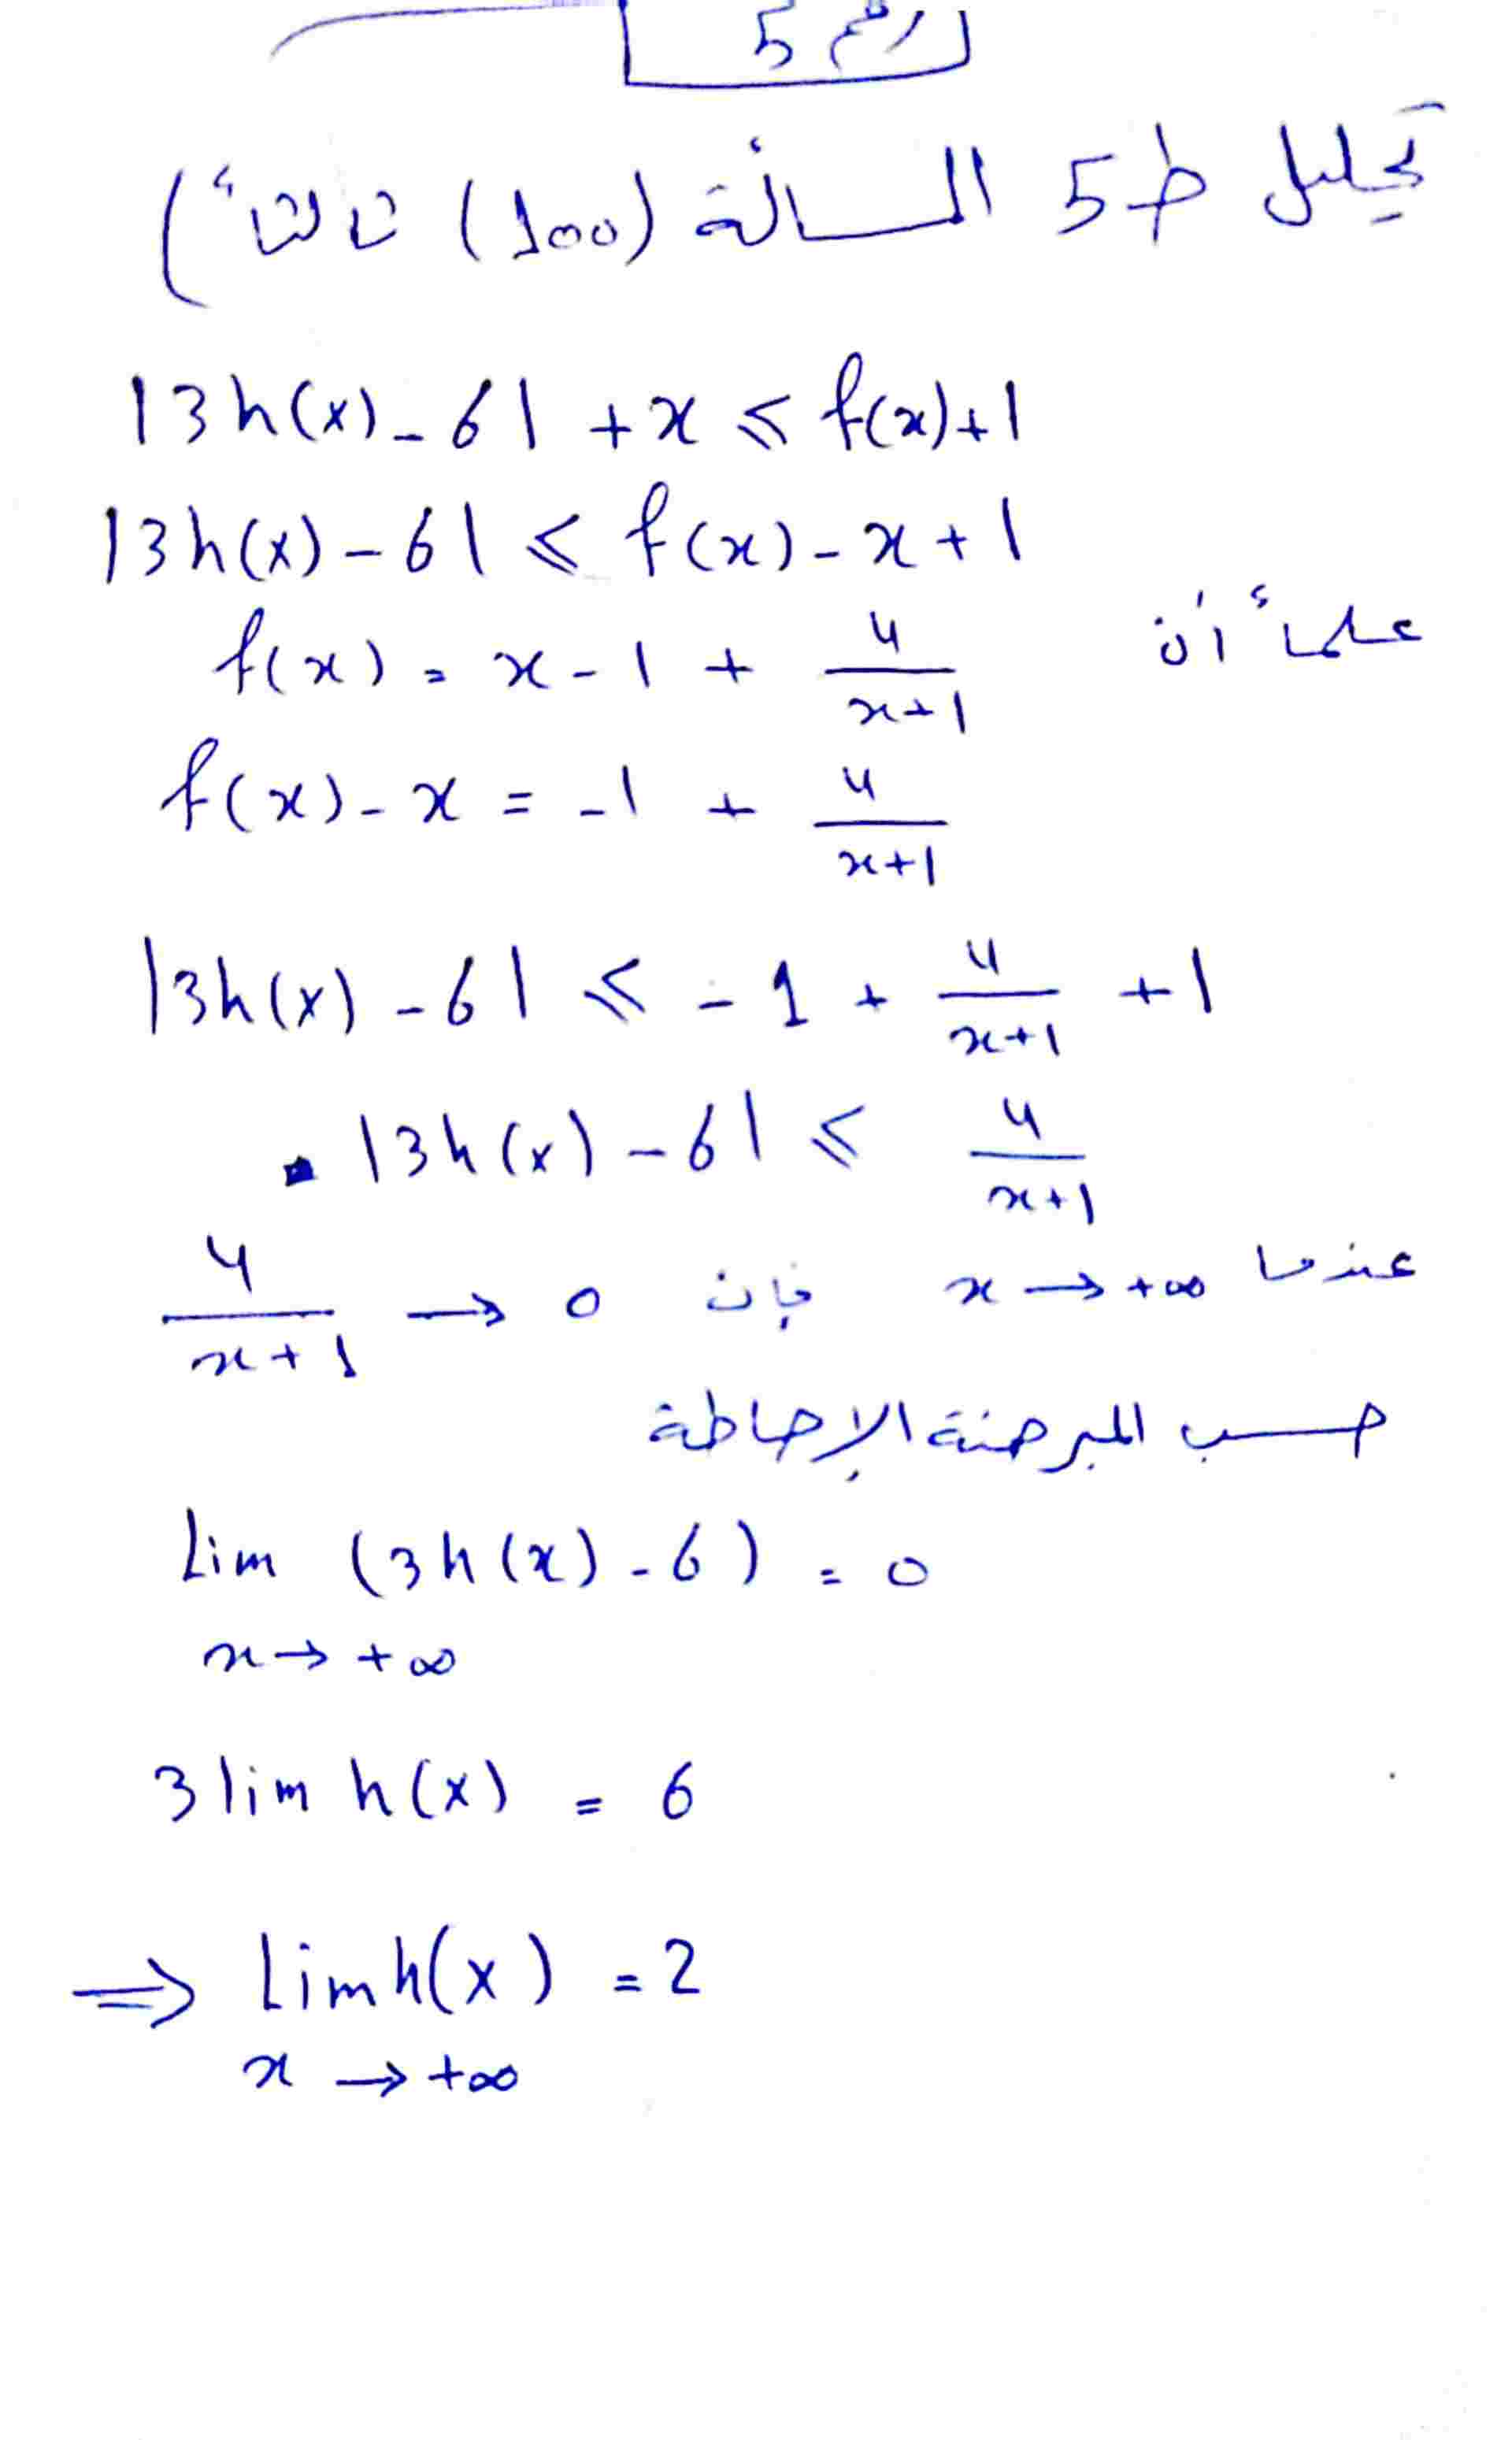 رقم 5
تحليل ط5 المسألة (100) ثالثاً)
|3h(x)-6| +x ⩽ f(x)+1
|3h(x)-6| ⩽ f(x)-x+1
علماً أن f(x) = x-1 + 4/(x+1)
f(x)-x = -1 + 4/(x+1)
|3h(x)-6| ⩽ -1 + 4/(x+1) +1
|3h(x)-6| ⩽ 4/(x+1)
عندما x → +∞ فإن 4/(x+1) → 0
حسب المبرهنة الإحاطة
Lim (3h(x)-6) = 0
x → +∞
3 lim h(x) = 6
⇒ Lim h(x) = 2
x → +∞